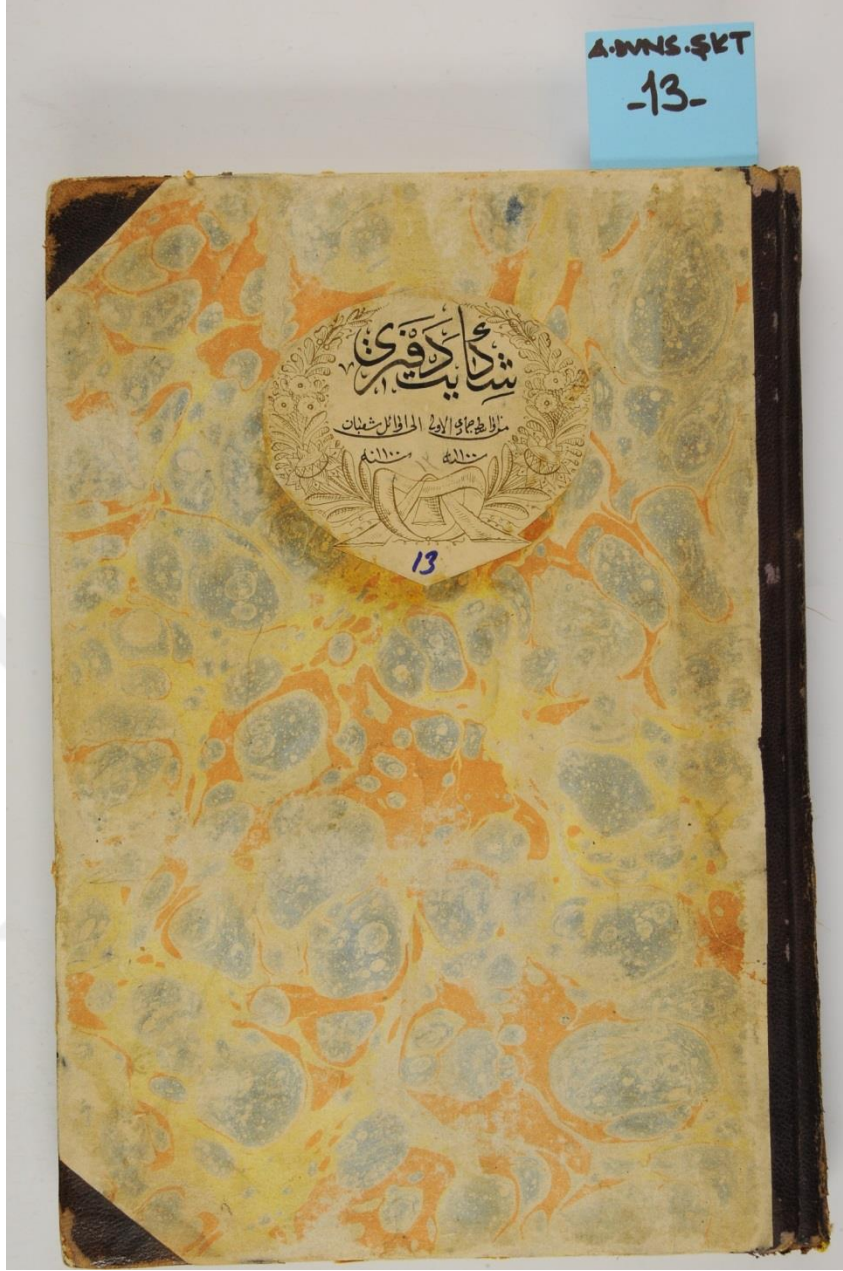 A.DVNS.ŞKT
-13-
شكايت دفتری
من اواسط جمادی الاولی الی اوائل شعبان
سنه ١١٠٠ سنه ١١٠٠
13